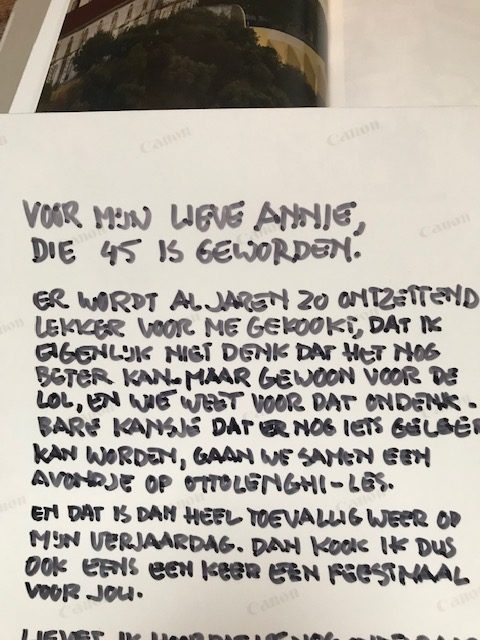 VOOR MIJN LIEVE ANNIE,
DIE 45 IS GEWORDEN.
ER WORDT AL JAREN ZO ONTZETTEND
LEKKER VOOR ME GEKOOKT, DAT IK
EIGENLIJK NIET DENK DAT HET NOG
BETER KAN. MAAR GEWOON VOOR DE
LOL, EN WIE WEET VOOR DAT ONDENK-
BARE KANSJE DAT ER NOG IETS GELEER
KAN WORDEN, GAAN WE SAMEN EEN
AVONDJE OP OTTOLENGHI-LES.
EN DAT IS DAN HEEL TOEVALLIG WEER OP
MIJN VERJAARDAG. DAN KOOK IK DUS
OOK EENS EEN KEER EEN FEESTMAAL
VOOR JOU.